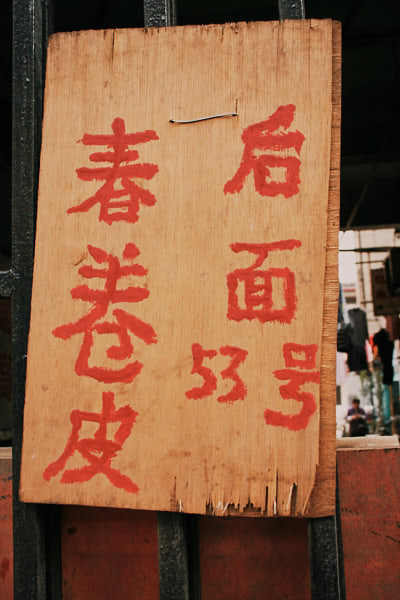 后面53号
春卷皮